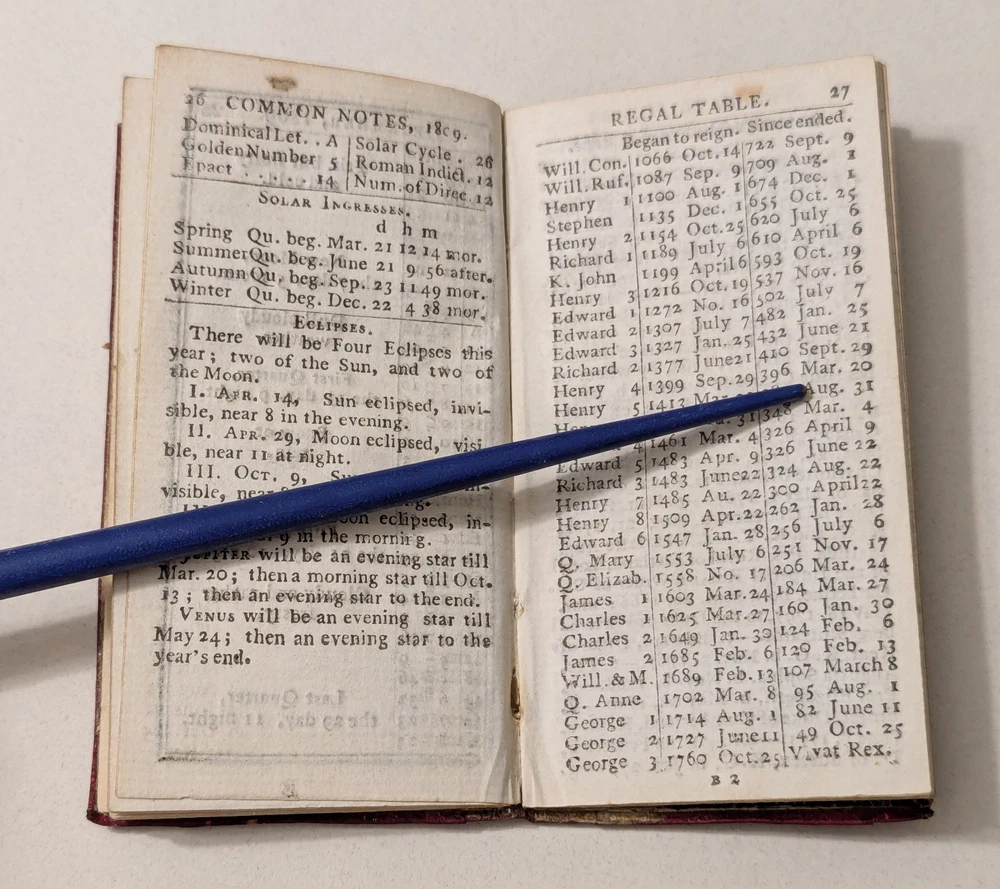 26 COMMON NOTES, 1809.
Dominical Let. . A | Solar Cycle . 26
Golden Number 5 | Roman Indict. 12
Epact . . . . . 14 | Num. of Direc. 12
SOLAR INGRESSES.
d h m
Spring Qu. beg. Mar. 21 12 14 mor.
Summer Qu. beg. June 21 9 56 after.
Autumn Qu. beg. Sep. 23 11 49 mor.
Winter Qu. beg. Dec. 22 4 38 mor.
ECLIPSES.
There will be Four Eclipses this
year; two of the Sun, and two of
the Moon.
I. APR. 14, Sun eclipsed, invi-
sible, near 8 in the evening.
II. APR. 29, Moon eclipsed, visi
ble, near 11 at night.
III. OCT. 9,
visible,
eclipsed, in-
9 in the morning.
JUPITER will be an evening star till
Mar. 20; then a morning star till Oct.
13; then an evening star to the end.
VENUS will be an evening star till
May 24; then an evening star to the
year's end.
REGAL TABLE. 27
Began to reign. Since ended.
Will. Con. 1066 Oct. 14 722 Sept. 9
Will. Ruf. 1087 Sep. 9 709 Aug. 1
Henry 1 1100 Aug. 1 674 Dec. 1
Stephen 1135 Dec. 1 655 Oct. 25
Henry 2 1154 Oct. 25 620 July 6
Richard 1 1189 July 6 610 April 6
K. John 1199 April 6 593 Oct. 19
Henry 3 1216 Oct. 19 537 Nov. 16
Edward 1 1272 No. 16 502 July 7
Edward 2 1307 July 7 482 Jan. 25
Edward 3 1327 Jan. 25 432 June 21
Richard 2 1377 June 21 410 Sept. 29
Henry 4 1399 Sep. 29 396 Mar. 20
Henry 5 1413 Mar. Aug. 31
31 348 Mar. 4
4 1461 Mar. 4 326 April 9
Edward 5 1483 Apr. 9 326 June 22
Richard 3 1483 June 22 324 Aug. 22
Henry 7 1485 Au. 22 300 April 22
Henry 8 1509 Apr. 22 262 Jan. 28
Edward 6 1547 Jan. 28 256 July 6
Q. Mary 1553 July 6 251 Nov. 17
Q. Elizab. 1558 No. 17 206 Mar. 24
James 1 1603 Mar. 24 184 Mar. 27
Charles 1 1625 Mar. 27 160 Jan. 30
Charles 2 1649 Jan. 30 124 Feb. 6
James 2 1685 Feb. 6 120 Feb. 13
Will. & M. 1689 Feb. 13 107 March 8
Q. Anne 1702 Mar. 8 95 Aug. 1
George 1 1714 Aug. 1 82 June 11
George 2 1727 June 11 49 Oct. 25
George 3 1760 Oct. 25 Vivat Rex.
B 2